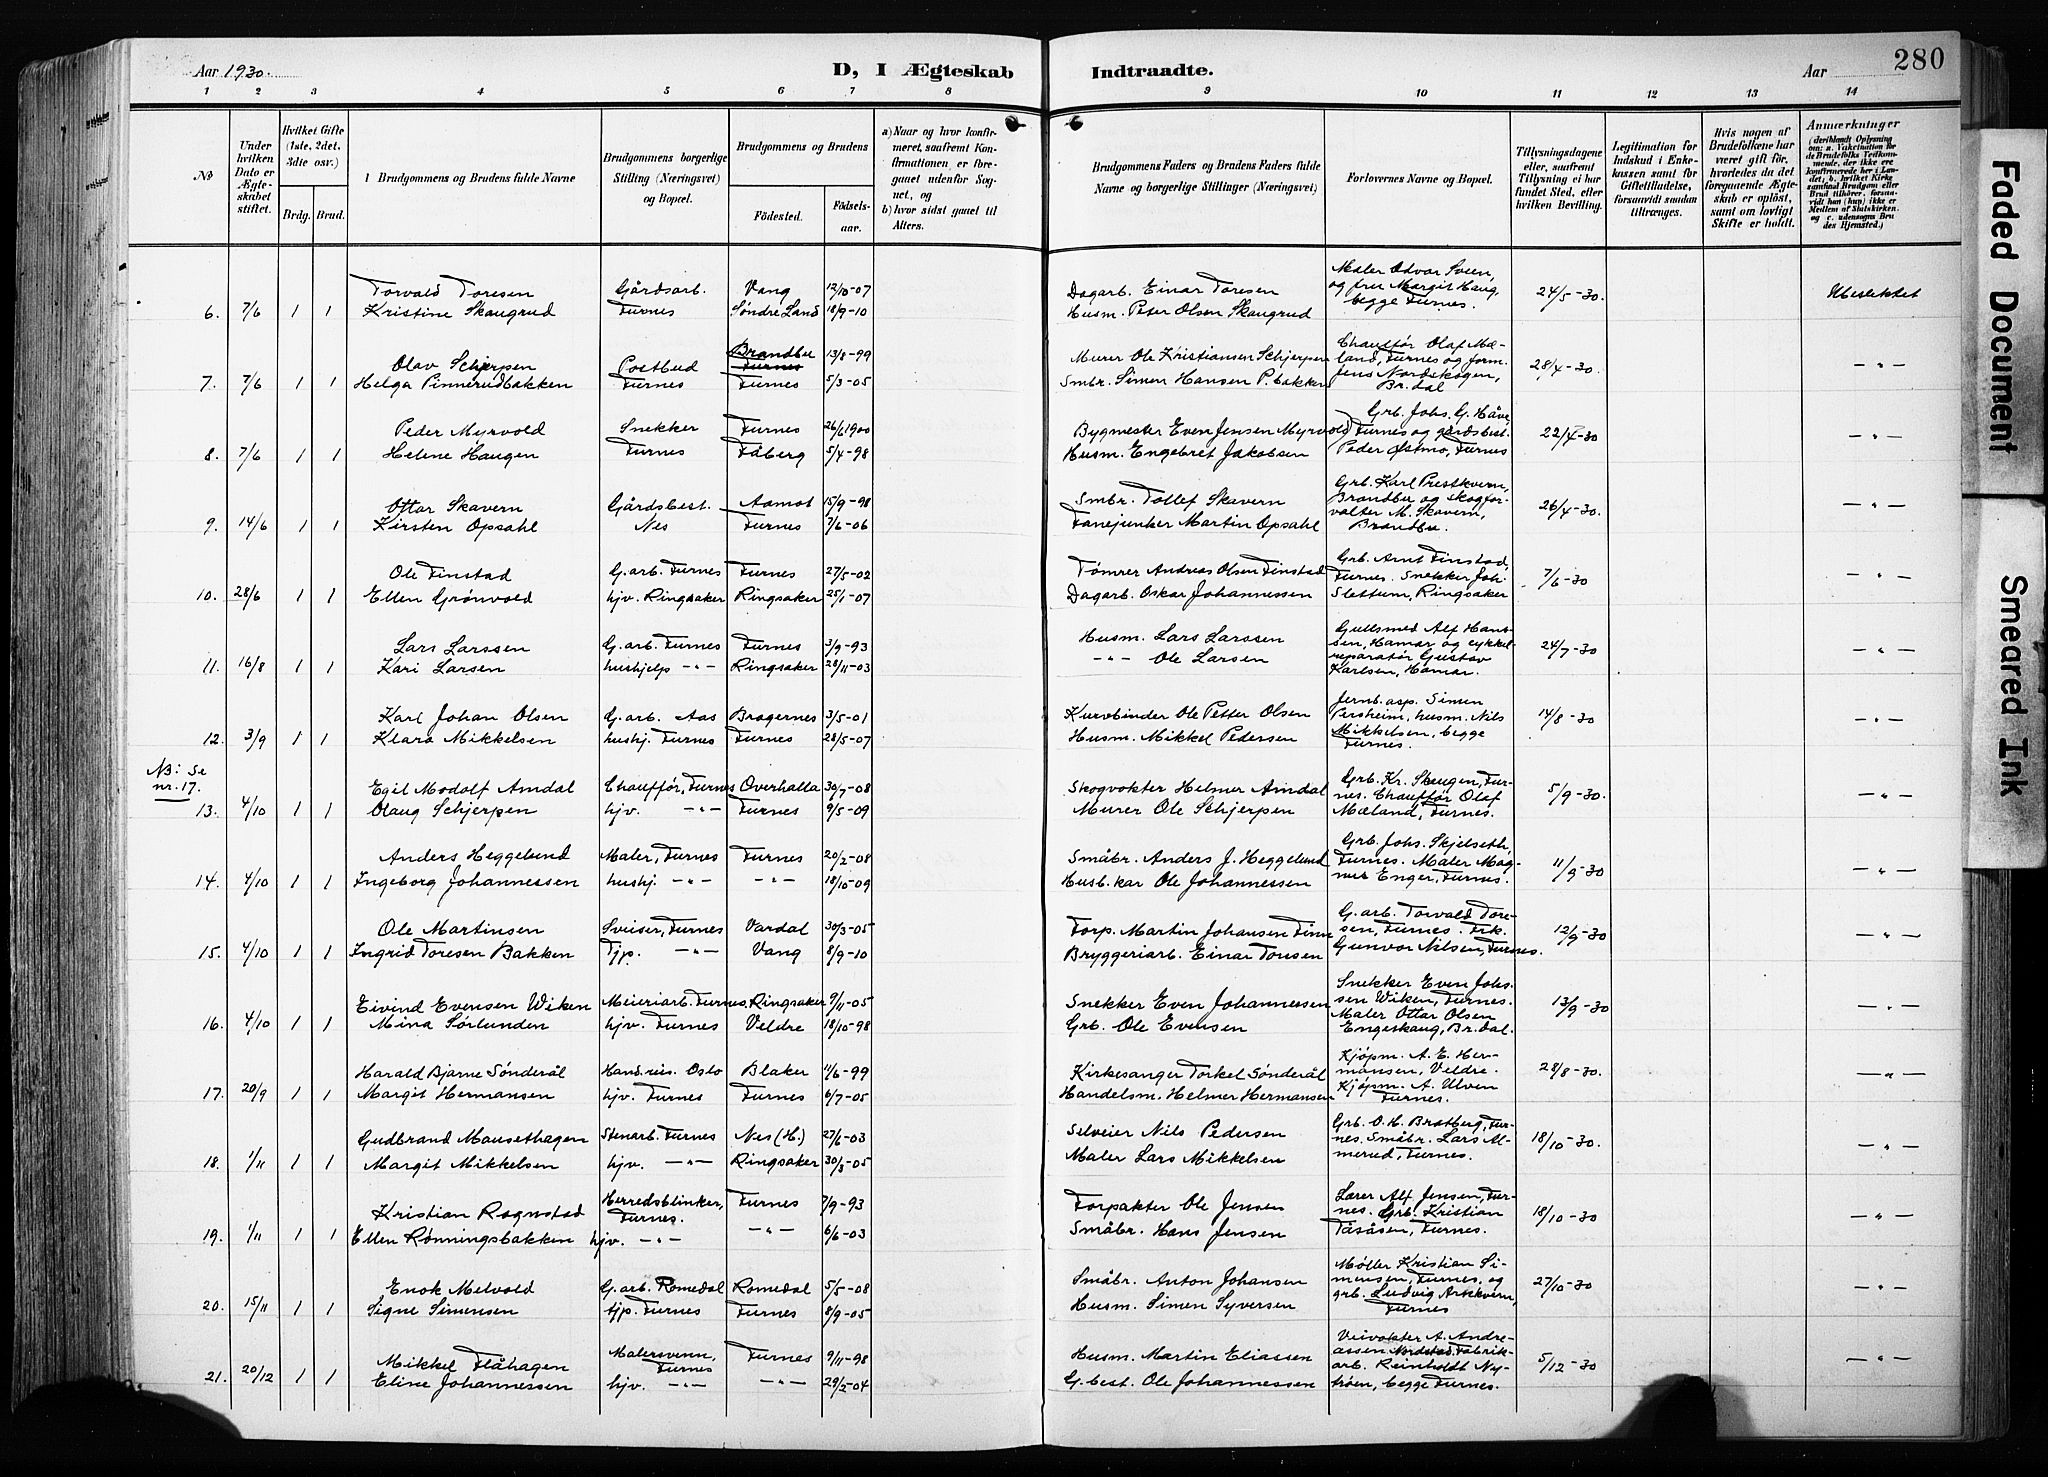 Aar 1930.
D, I Ægteskab
Indtraadte.
Aar
280
1 2 3 4 5 6 7 8 9 10 11 12 13 14
No
Under hvilken Dato er Ægteskabet stiftet.
Hvilket Gifte (1ste, 2det, 3die osv.)
Brdg. Brud.
Brudgommens og Brudens fulde Navne
Brudgommens borgerlige Stilling (Næringsvei) og Bopæl.
Brudgommens og Brudens
Födested.
Födselsaar.
a) Naar og hvor konfirmeret, saafremt Konfirmationen er foregaaet udenfor Sognet, og
b) hvor sidst gaaet til Alters.
Brudgommens Faders og Brudens Faders fulde Navne og borgerlige Stillinger (Næringsvei)
Forlovernes Navne og Bopæl.
Tillysningsdagene eller, saafremt Tillysning ei har fundet Sted, efter hvilken Bevilling.
Legitimation for Indskud i Enkekassen samt for Giftetilladelse, forsaavidt saadan tiltrænges.
Hvis nogen af Brudefolkene har været gift før, hvorledes da det foregaaende Ægteskab er oplöst, samt om lovligt Skifte er holdt.
Anmærkninger
(deriblandt Oplysning om: a. Vakcination for de Brudefolks Vedkommende, der ikke ere konfirmerede her i Landet; b. hvilket Kirkesamfund Brudgom eller Brud tilhörer, forsaavidt han (hun) ikke er Medlem af Statskirken, og c. udensogns Brudes Hjemsted.)
Torvald Toresen Gårdsarb. Vang 12/10-07 Dagarb. Einar Toresen Maler Odvar Sveen, og fru Margit Haug, begge Furnes. 24/5-30. Ubeslektet
6. 7/6 1 1 Kristine Skaugrud Furnes Søndre Land 18/9-10 Husm. Peter Olsen Skaugrud
Olav Schjerpen Postbud Brandbu Furnes 13/8-99 Murer Ole Kristiansen Schjerpen Chauffør Olaf Mæland, Furnes og form. Jens Nordskogen, Br.dal 28/4-30. -"-
7. 7/6 1 1 Helga Pinnerudbakken Furnes Furnes 5/3-05 Smbr. Simen Hansen P.bakken
Peder Myrvold Snekker Furnes 26/6 1900 Bygmester Even Jensen Myrvold Grb. Johs. G. Håve, Furnes og gårdsbest. Peder Østmo, Furnes 22/4-30 -"-
8. 7/6 1 1 Helene Haugen Furnes Fåberg 5/4-98 Husm. Engebret Jakobsen
Ottar Skavern Gårdsbest. Aamot 15/9-98 Smbr. Tollef Skavern Grb. Karl Prestkvern, Brandbu og skogforvalter M. Skavern, Brandbu. 26/4-30. -"-
9. 14/6 1 1 Kirsten Opsahl Nes Furnes 7/6-06 Fanejunker Martin Opsahl
Ole Finstad G.arb. Furnes Furnes 27/5-02 Tømrer Andreas Olsen Finstad Grb. Arnt Finstad, Furnes. Snekker Joh. Slettum, Ringsaker 7/6-30 -"-
10. 28/6 1 1 Ellen Grønvold hjv. Ringsaker Ringsaker 25/1-07 Dagarb. Oskar Johannessen
Lars Larssen G.arb. Furnes Furnes 3/9-93 Husm. Lars Larssen Gullsmed Alf Hanssen, Hamar og cykkelreparatør Gustav Karlsen, Hamar. 24/7-30 -"-
11. 16/8 1 1 Kari Larsen hushjelp -"- Ringsaker 28/11-03 -"- Ole Larsen
Karl Johan Olsen G.arb. Aas Bragernes 3/5-01 Kurvbinder Ole Petter Olsen Jernb.asp. Simen Persheim, husm. Nils Mikkelsen, begge Furnes. 14/8-30 -"-
12. 3/9 1 1 Klara Mikkelsen hushj. Furnes Furnes 28/5-07 Husm. Mikkel Pedersen
NB: Se nr. 17.
Egil Modolf Amdal Chauffør, Furnes Overhalla 30/7-08 Skogvokter Helmer Amdal Grb. Kr. Skaugen, Furnes. Chauffør Olaf Mæland, Furnes. 5/9-30. -"-
13. 4/10 1 1 Olaug Schjerpen hjv. -"- Furnes 9/5-09 Murer Ole Schjerpen
Anders Heggelund Maler, Furnes Furnes 20/2-08 Småbr. Anders J. Heggelund Grb. Johs. Skjelseth, Furnes. Maler Magnus Enger, Furnes. 11/9-30 -"-
14. 4/10 1 1 Ingeborg Johannessen hushj. -"- -"- 18/10-09 Husb.kar Ole Johannessen
Ole Martinsen Sveiser, Furnes Vardal 30/3-05 Forp. Martin Johansen Finne G.arb. Torvald Toresen, Furnes. Frk. Gunvor Nilsen, Furnes. 12/9-30 -"-
15. 4/10 1 1 Ingrid Toresen Bakken Tjp. -"- Vang 8/9-10 Bryggeriarb. Einar Toresen
Eivind Evensen Wiken Meieriarb. Furnes. Ringsaker 9/11-05 Snekker Even Johannessen Snekker Even Johs.sen Wiken, Furnes. Maler Ottar Olsen Engeskaug, Br.dal. 13/9-30 -"-
16. 4/10 1 1 Mina Sørlunden hjv. Furnes Veldre 18/10-98 Grb. Ole Evensen
Harald Bjarne Sønderål Hand.reis. Oslo Blaker 11/6-99 Kirkesanger Torkel Sønderål Kjøpm. A. E. Hermansen, Veldre. Kjøpm. A. Ulven Furnes. 28/8-30. -"-
17. 20/9 1 1 Margit Hermansen hjv. Furnes Furnes 6/7-05 Handelsm. Helmer Hermansen
Gudbrand Mausethagen Stenarb. Furnes Nes (H.) 27/6-03 Selveier Nils Pedersen Grb. O. H. Bratberg, Furnes. Småbr. Lars Almerud, Furnes. 18/10-30. -"-
18. 1/11 1 1 Margit Mikkelsen hjv. -"- Ringsaker 30/3-05 Maler Lars Mikkelsen
Kristian Rognstad Herredsblinker, Furnes. Furnes 7/9-93 Forpakter Ole Jensen Lærer Alf Jensen, Furnes. Grb. Kristian Tåsåsen, Furnes. 18/10-30 -"-
19. 1/11 1 1 Ellen Rønningsbakken hjv. -"- -"- 6/6-03 Småbr. Hans Jensen
Enok Melvold G.arb. Romedal Romedal 5/5-08 Småbr. Anton Johansen Møller Kristian Simensen, Furnes, og grb. Ludvig Arnkvern, Furnes 27/10-30 -"-
20. 15/11 1 1 Signe Simensen tjp. Furnes Furnes 8/9-05 Husm. Simen Syversen
Mikkel Flåhagen Malersvenn, Furnes Furnes 9/11-98 Husm. Martin Eliassen Veivokter A. Andreassen Nordstad. Fabrikarb. Reinholdt Nytrøen, begge Furnes. 5/12-30 -"-
21. 20/12 1 1 Eline Johannessen hjv. -"- -"- 29/2-04 G.best. Ole Johannessen
Faded Document
Smeared Ink